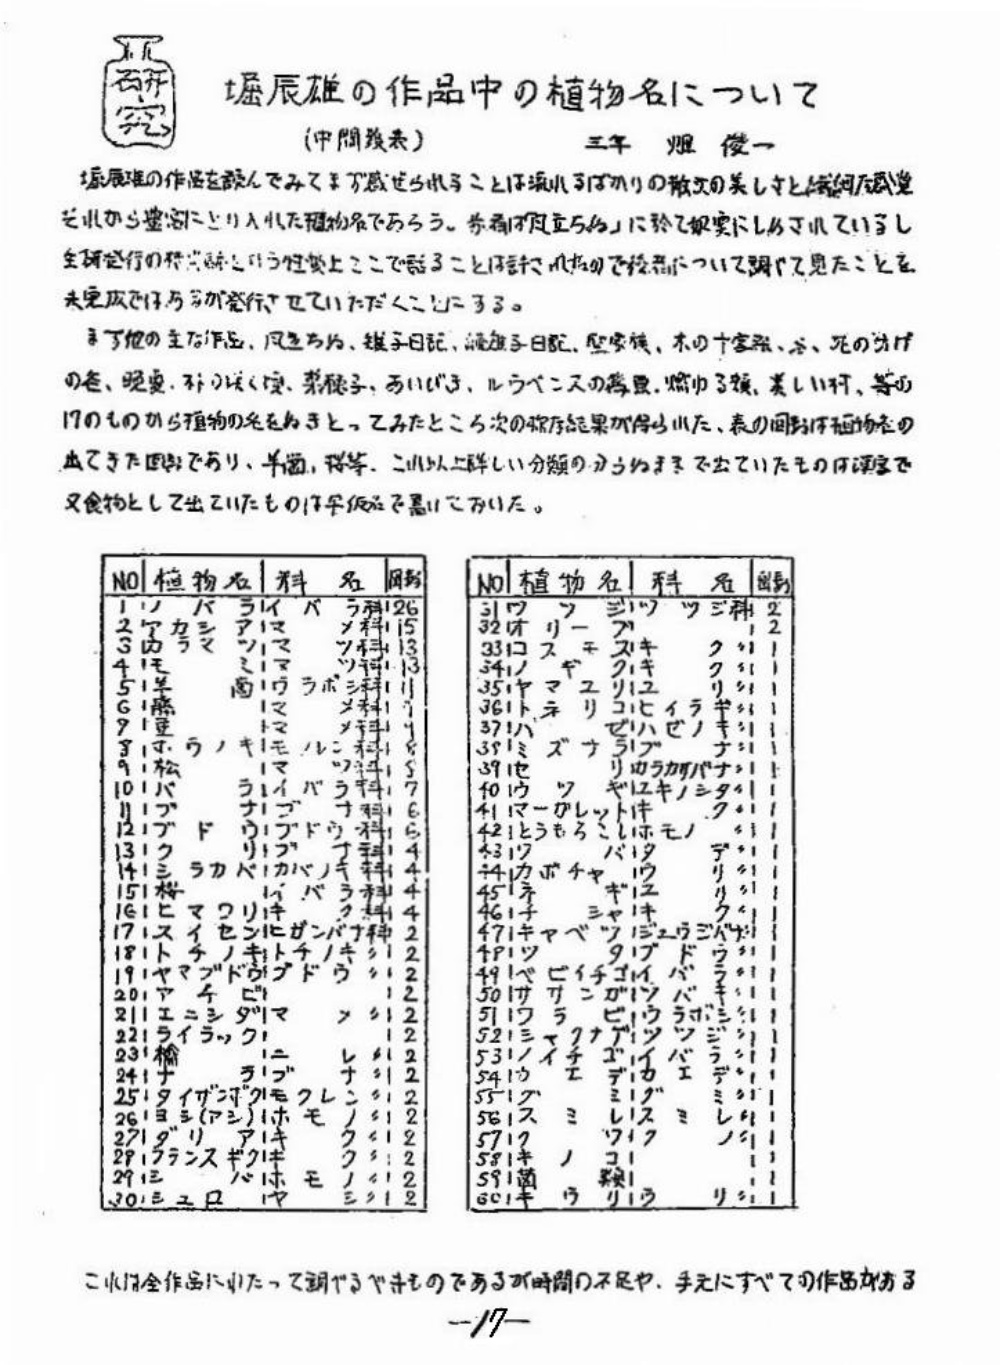 研究
堀辰雄の作品中の植物名について
(中間発表)
三年 畑 俊一
堀辰雄の作品を読んでみてまず感ぜられることは流れるばかりの散文の美しさと繊細な感覚
それから豊富にとり入れた植物名であろう。前者は「風立ちぬ」に於て如実にしめされているし
発行の という性質上ここで語ることは許されないので後者について調べて見たことを
未完成ではあるが発行させていただくことにする。
まず他の主な作品、風立ちぬ、雉子日記、 日記、 家族、木の十字架、 、死の
の巻、晩夏、 咲く頃、菜穂子、あいびき、ルウベンスの偽画、燃ゆる頬、美しい村、等の
17のものから植物の名をぬきとってみたところ次の様な結果が得られた、表の回数は植物名の
出てきた回数であり、羊歯、桜等、これ以上詳しい分類の分らぬままで出ていたものは漢字で
又食物として出ていたものは平仮名で書いておいた。
NO 植物名 科名 回数
1 ノバラ イバラ科 26
2 アカシア マメ科 15
3 カラマツ マツ科 13
4 モミ マツ科 13
5 羊歯 ウラボシ科 11
6 藤 マメ科
7 豆 マメ科
8 ホウノキ モクレン科 8
9 松 マツ科 8
10 バラ イバラ科 7
11 ブナ ブナ科 6
12 ブドウ ブドウ科 6
13 クリ ブナ科 4
14 シラカバ カバノキ科 4
15 桜 イバラ科 4
16 ヒマワリ キク科 4
17 スイセン ヒガンバナ科 2
18 トチノキ トチノキ〃 2
19 ヤマブドウ ブドウ〃 2
20 アケビ 2
21 エニシダ マメ〃 2
22 ライラック 2
23 楡 ニレ〃 2
24 ナラ ブナ〃 2
25 タイザンボク モクレン〃 2
26 ヨシ(アシ) ホモノ〃 2
27 ダリア キク〃 2
28 フランスギク キク〃 2
29 シバ ホモノ〃 2
30 シュロ ヤシ〃 2
NO 植物名 科名 回数
31 ツツジ ツツジ科 2
32 オリーブ 2
33 コスモス キク〃 1
34 ノギク キク〃 1
35 ヤマユリ ユリ〃 1
36 トネリコ ヒイラギ〃 1
37 ハゼ ハゼノキ〃 1
38 ミズナラ ブナ〃 1
39 セリ カラカサバナ〃 1
40 ウツギ ユキノシタ〃 1
41 マーガレット キク〃 1
42 とうもろこし ホモノ〃 1
43 ワバ タデ〃 1
44 カボチャ ウリ〃 1
45 ネギ ユリ〃 1
46 チシャ キク〃 1
47 キャベツ ジュウジバナ 1
48 ツタ ブドウ〃 1
49 ベビイチゴ イバラ〃 1
50 サザンガ ツバキ〃 1
51 ワラビ ウラボシ〃 1
52 シャクナゲ ツツジ〃 1
53 ノイチゴ イバラ〃 1
54 カエデ カエデ〃 1
55 グミ グミ〃 1
56 スミレ スミレ〃 1
57 クワ クワ〃 1
58 キノコ 1
59 菌類 1
60 キウリ ウリ〃 1
これは全作品にわたって調べるべきものであるが時間の不足や、手元にすべての作品がある
—17—